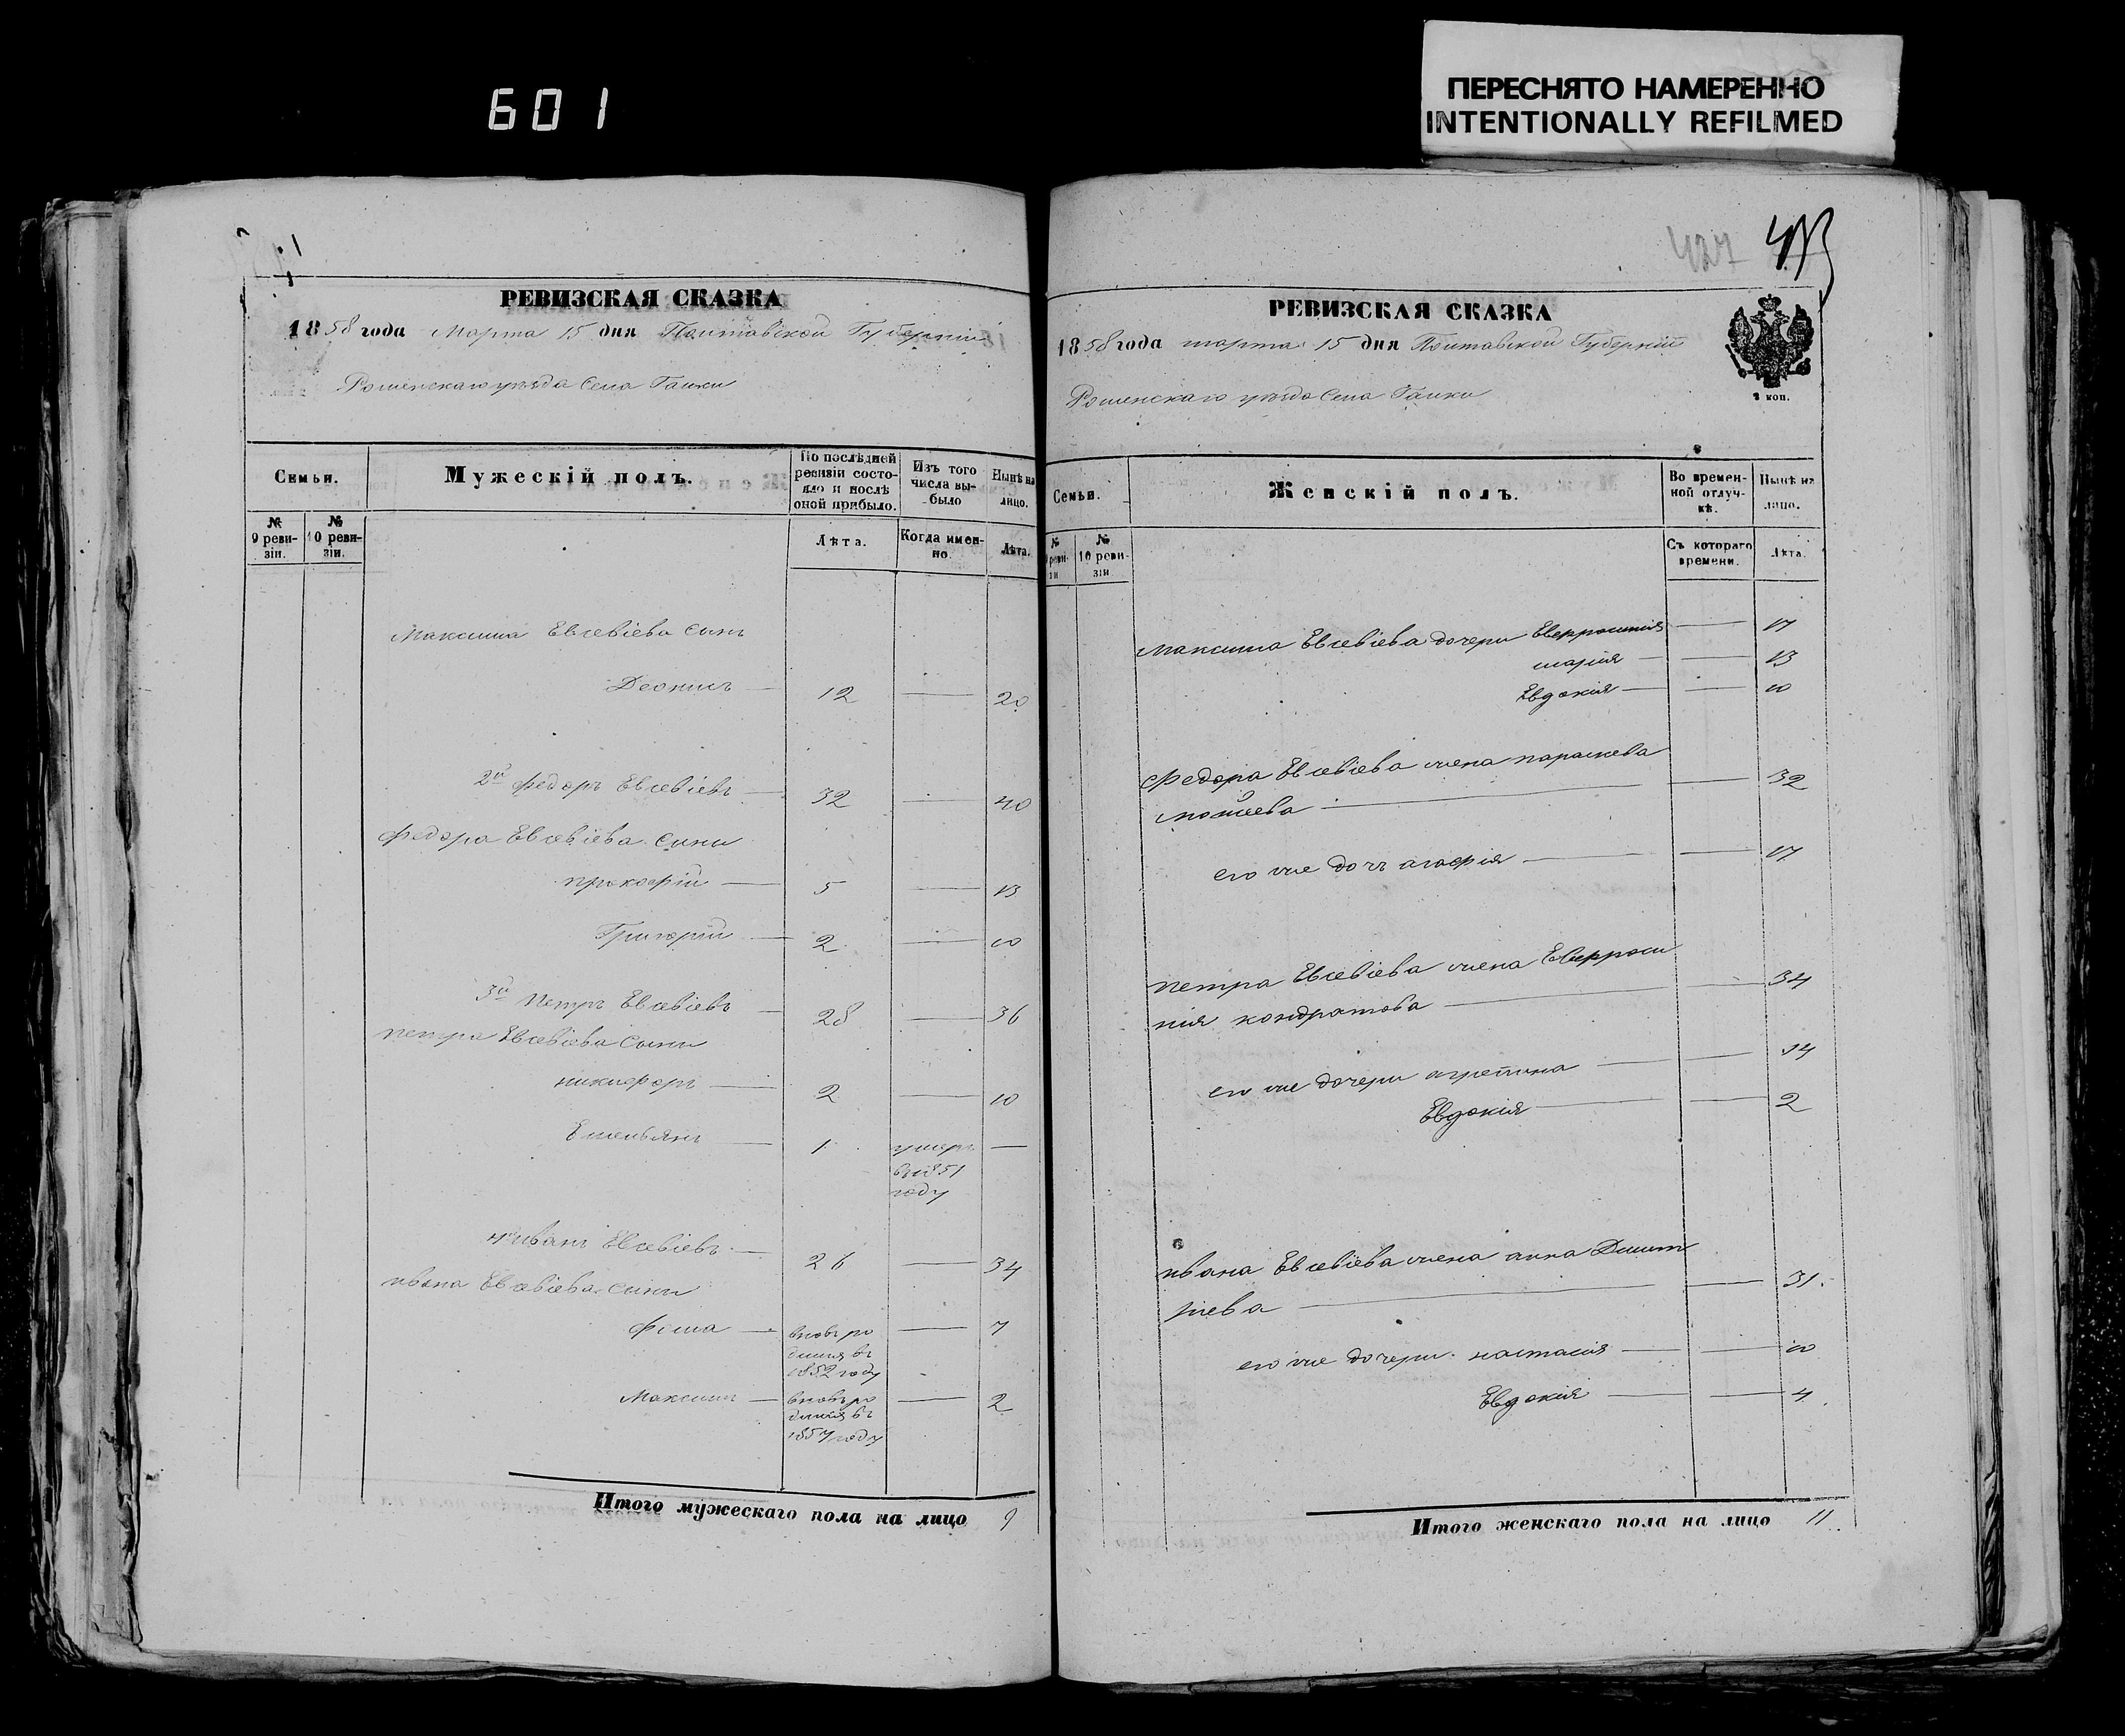 601
ПЕРЕСНЯТО НАМЕРЕННО
INTENTIONALLY REFILMED
РЕВИЗСКАЯ СКАЗКА
1858 года Марта 15 дня Полтавской Губерніи
Роменскаго уѣзда Села Галки
Семьи.
Мужескій полъ.
По послѣдней ревизіи состояло и послѣ оной прибыло.
Изъ того числа выбыло
Нынѣ на лицо.
№ 9 ревизіи.
№ 10 ревизіи.
Лѣта.
Когда именно.
Лѣта.
Максима Евсевіева сынъ
12 — 20
2й Федоръ Евсевіевъ — 32 — 40
Федора Евсевіева сыны
прокофій — 5 — 13
Григорій — 2 — 10
3й Петръ Евсевіевъ — 28 — 36
петра Евсевіева сыны
никифоръ — 2 — 10
Емельянъ — 1 умеръ —
въ 1851
году
4й иванъ Евсевіевъ — 26 — 34
ивана Евсевіева сыны
Фома — вновь ро — 7
дился въ
1852 году
Максимъ — вновь ро — 2
дился въ
1857 году
Итого мужескаго пола на лицо 9
427
РЕВИЗСКАЯ СКАЗКА
1858 года марта 15 дня Полтавской Губерніи
Роменскаго уѣзда Села Галки
2 коп.
Семьи.
Женскій полъ.
Во временной отлучкѣ.
Нынѣ на лицо.
№ 9 ревизіи
№ 10 ревизіи
Съ котораго времени.
Лѣта.
Максима Евсевіева дочери Евфросинія — 17
марія — — 13
Евдокія — — 10
Федора Евсевіева жена параскева
моисеева — — 32
его же дочь агафія — — 17
петра Евсевіева жена Евфроси
нія кондратова — — 34
его же дочери агрепина — — 14
Евдокія — — 2
ивана Евсевіева жена анна Димит
ріева — — 31
его же дочери настасія — — 10
Евдокія — — 4
Итого женскаго пола на лицо 11